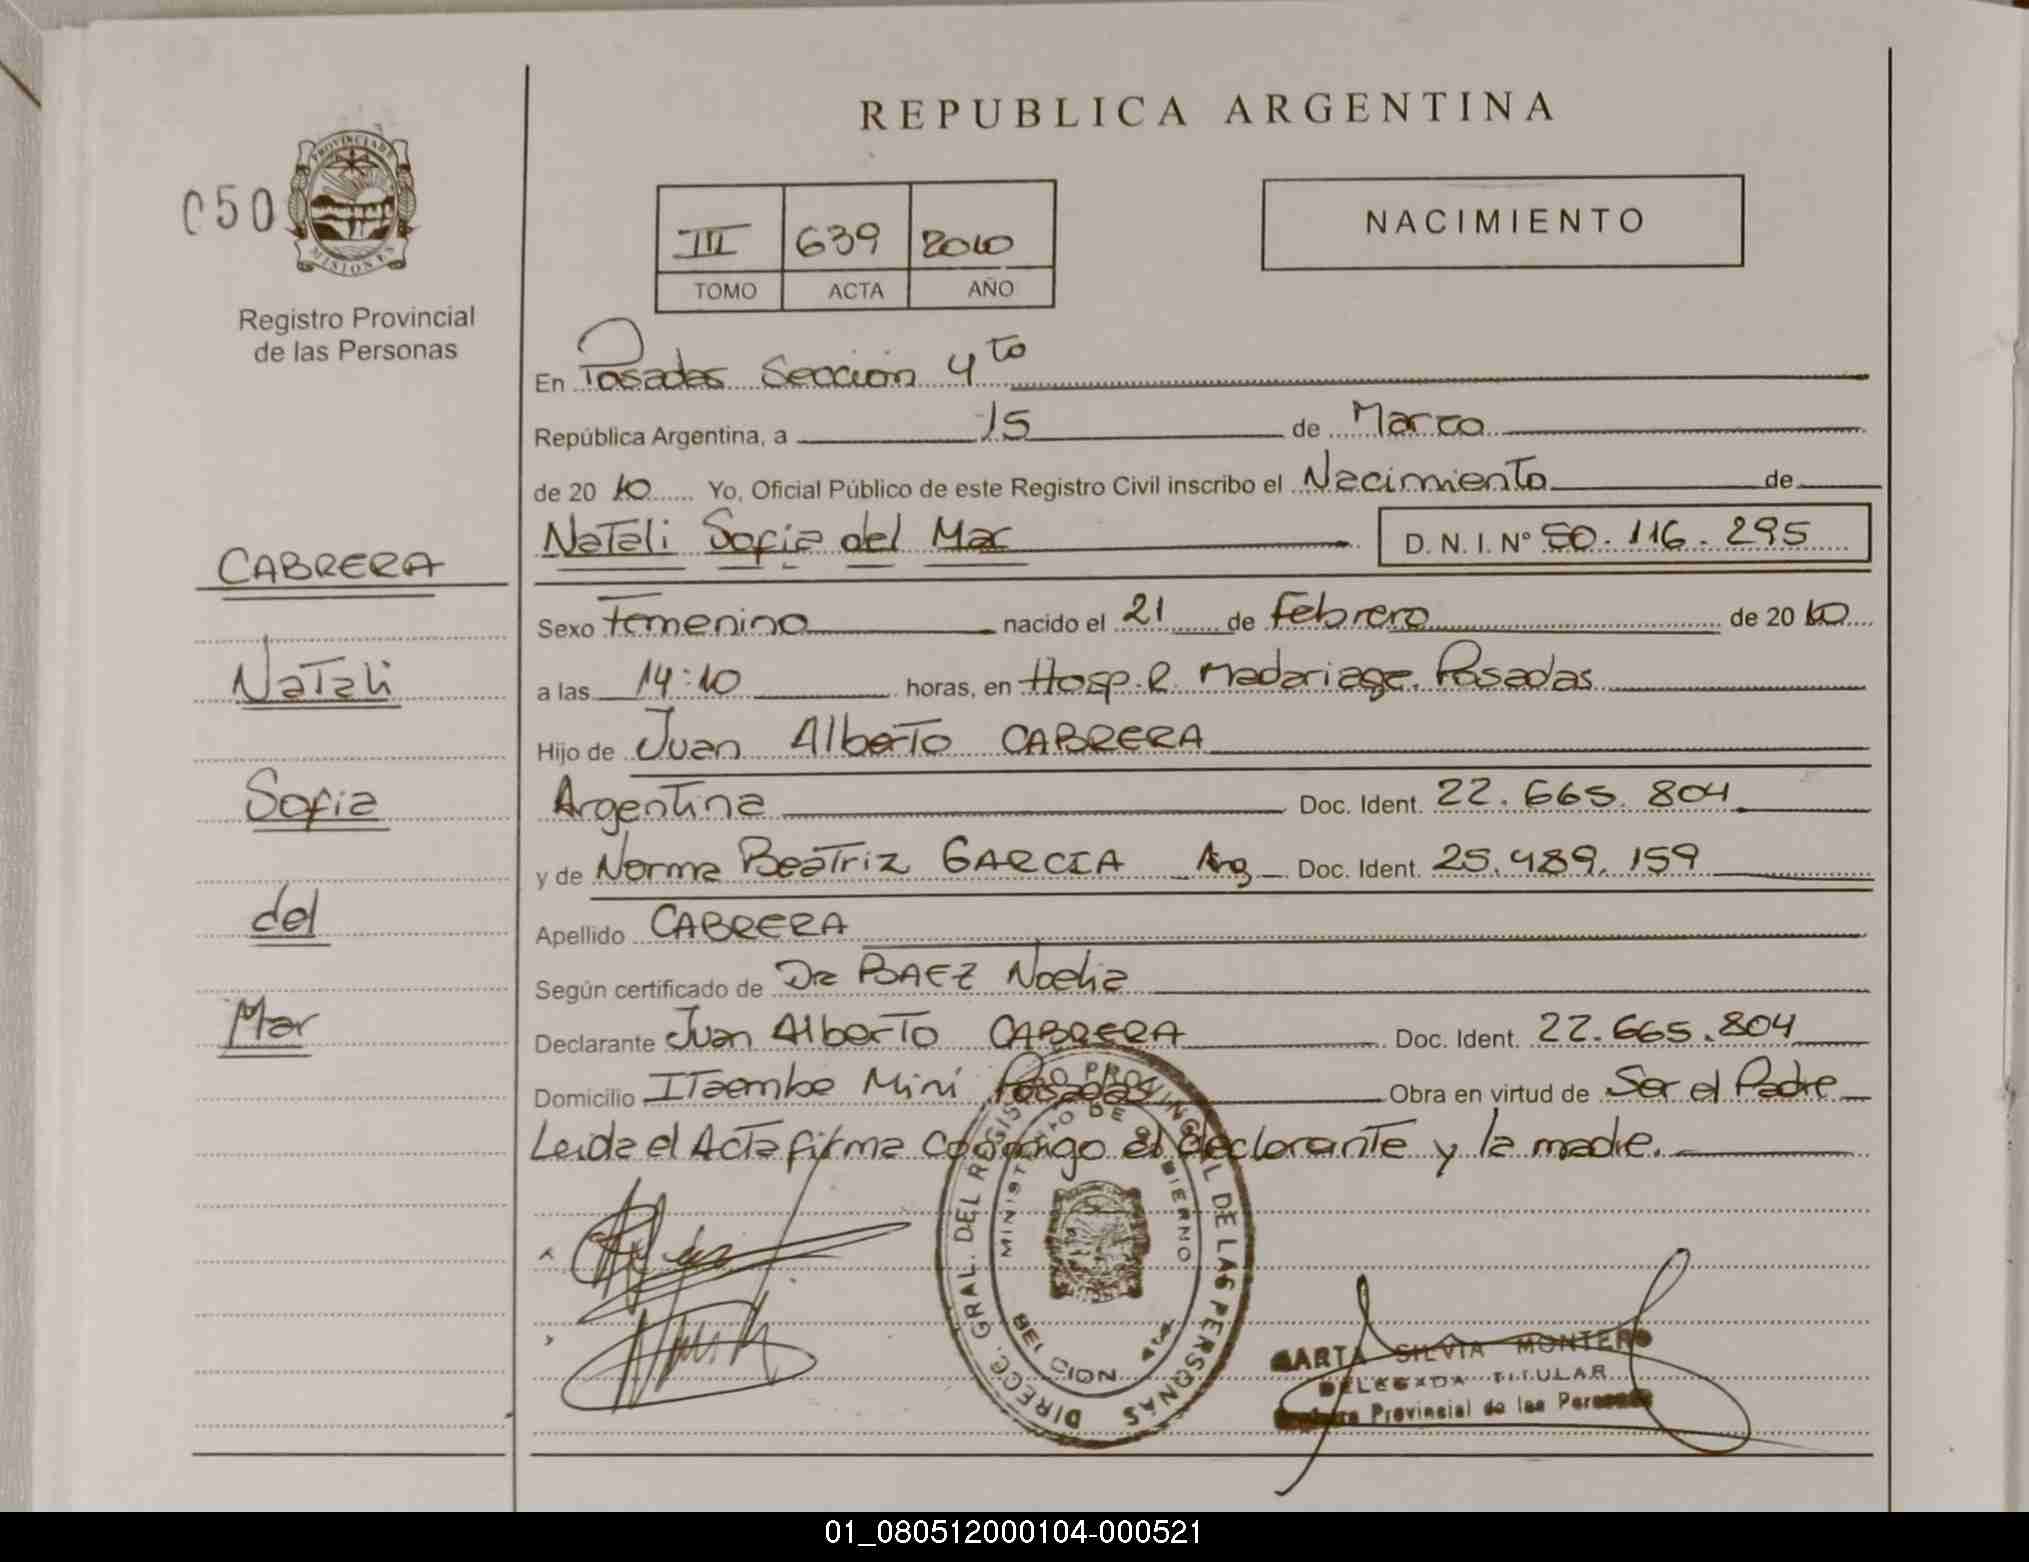 REPUBLICA ARGENTINA
050
PROVINCIA DE
MISIONES
Registro Provincial
de las Personas
III 639 2010
TOMO ACTA AÑO
NACIMIENTO
En Posadas Sección 4to
República Argentina, a 15 de Marzo
de 2010 Yo, Oficial Público de este Registro Civil inscribo el Nacimiento de
Natali Sofia del Mar D. N. I. Nº 50.116.295
Sexo Femenino nacido el 21 de Febrero de 2010
a las 14:10 horas, en Hosp. R. Madariaga. Posadas
Hijo de Juan Alberto CABRERA
Argentina Doc. Ident. 22.665.804
y de Norma Beatriz GARCIA Arg Doc. Ident. 25.489.159
Apellido CABRERA
Según certificado de Dra BAEZ Noelia
Declarante Juan Alberto CABRERA Doc. Ident. 22.665.804
Domicilio Itaembe Mini Posadas Obra en virtud de Ser el Padre
Leida el Acta firma conmigo el declarante y la madre.
CABRERA
Natali
Sofia
del
Mar
DIRECC. GRAL. DEL REGISTRO PROVINCIAL DE LAS PERSONAS
MINISTERIO DE GOBIERNO
MARTA SILVIA MONTERO
DELEGADA TITULAR
Registro Provincial de las Personas
01_080512000104-000521